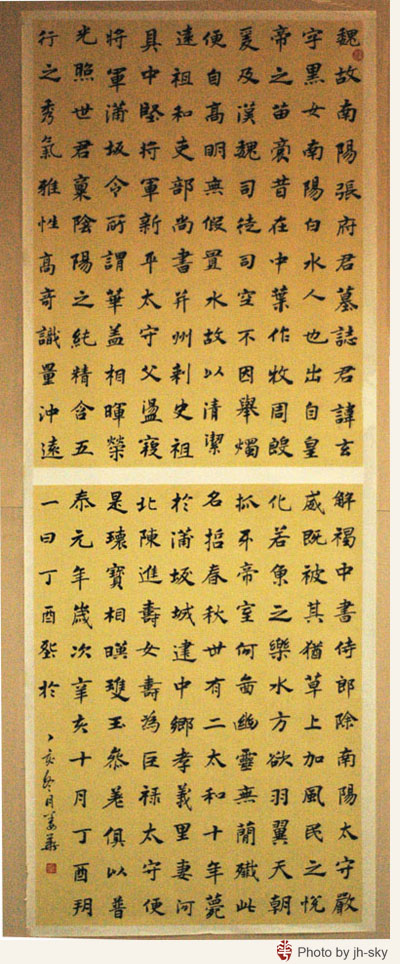 魏故南陽張府君墓誌君諱玄
字黑女南陽白水人也出自皇
帝之苗裔昔在中葉作牧周殷
爰及漢魏司徒司空不因舉燭
便自高明無假置水故以清潔
遠祖和吏部尚書并州刺史祖
具中堅將軍新平太守父盪寇
將軍蒲坂令所謂華蓋相暉榮
光照世君稟陰陽之純精含五
行之秀氣雅性高奇識量沖遠
解褐中書侍郎除南陽太守嚴
威既被其猶草上加風民之悅
化若魚之樂水方欲羽翼天朝
抓牙帝室何啚幽靈無蕑殲此
名招春秋卅有二太和十年薨
於蒲坂城建中鄉孝義里妻河
北陳進壽女壽為巨祿太守便
是瓌寶相暎瓊玉參差俱以普
泰元年歲次辛亥十月丁酉朔
一日丁酉葬於
丁亥冬月
Photo by jh-sky